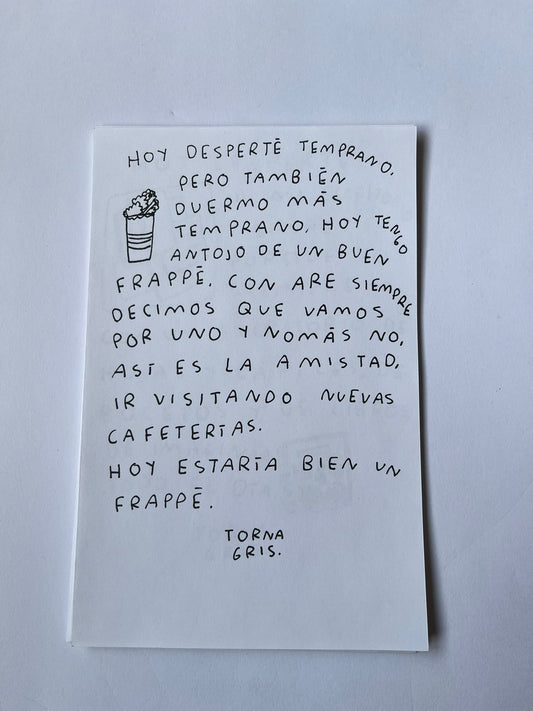 HOY DESPERTÉ TEMPRANO,
PERO TAMBIÉN
DUERMO MÁS
TEMPRANO, HOY TENGO
ANTOJO DE UN BUEN
FRAPPÉ. CON ARE SIEMPRE
DECIMOS QUE VAMOS
POR UNO Y NOMÁS NO,
ASÍ ES LA AMISTAD,
IR VISITANDO NUEVAS
CAFETERÍAS.
HOY ESTARÍA BIEN UN
FRAPPÉ.
TORNA
GRIS.